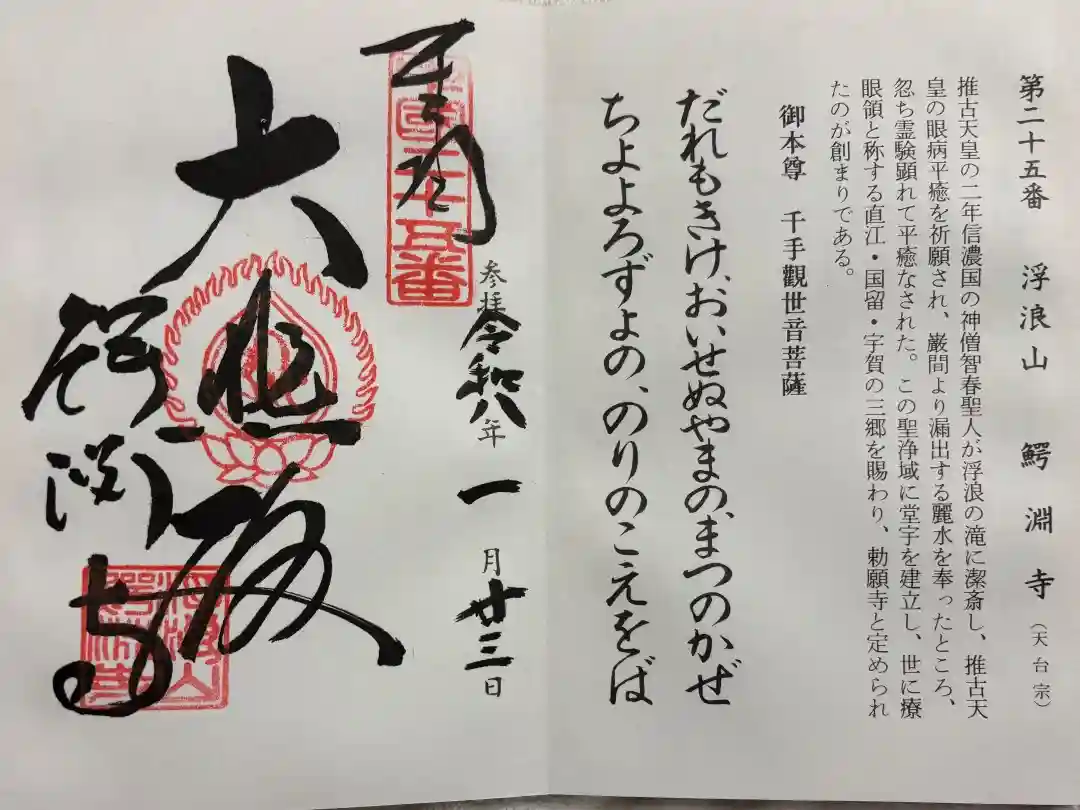 第二十五番 浮浪山 鰐淵寺（天台宗）
推古天皇の二年信濃国の神僧智春聖人が浮浪の滝に潔斎し、推古天
皇の眼病平癒を祈願され、巌間より漏出する麗水を奉ったところ、
忽ち霊験顕れて平癒なされた。この聖浄域に堂宇を建立し、世に療
眼領と称する直江・国留・宇賀の三郷を賜わり、勅願寺と定められ
たのが創まりである。
御本尊 千手觀世音菩薩
だれもきけ、おいせぬやまの、まつのかぜ
ちよよろずよの、のりのこえをば
参拝令和八年一月廿三日
第二十五番
大悲殿
鰐淵寺